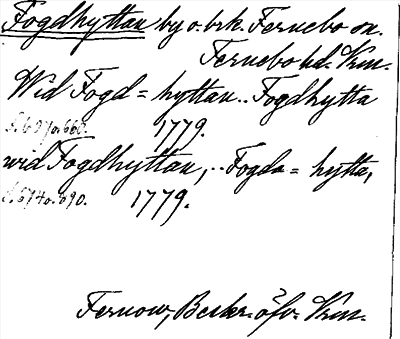 Fogdhyttan by o. brk. Fernebo sn.
Fernebo hd. Vrm.
Wid Fogd=hyttan.. Fogdhytta
S. 659 o. 660. 1779.
wid Fogdhyttan,.. Fogda=hytta,
S. 674 o. 690. 1779.
Fernow, Beskr. öfv. Vrm.